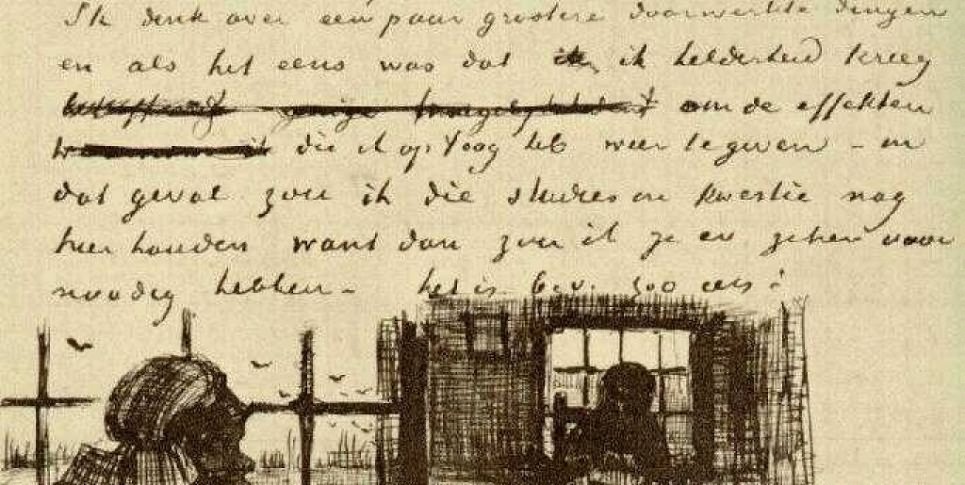 Ik denk over een paar grootere doorwerkte dingen
en als het eens was dat ik helderheid kreeg
om de effekten
die ik op't oog heb weer te geven – in
dat geval zou ik die studies in kwestie nog
hier houden want dan zou ik ze er zeker voor
noodig hebben – het is b.v. zoo iets: